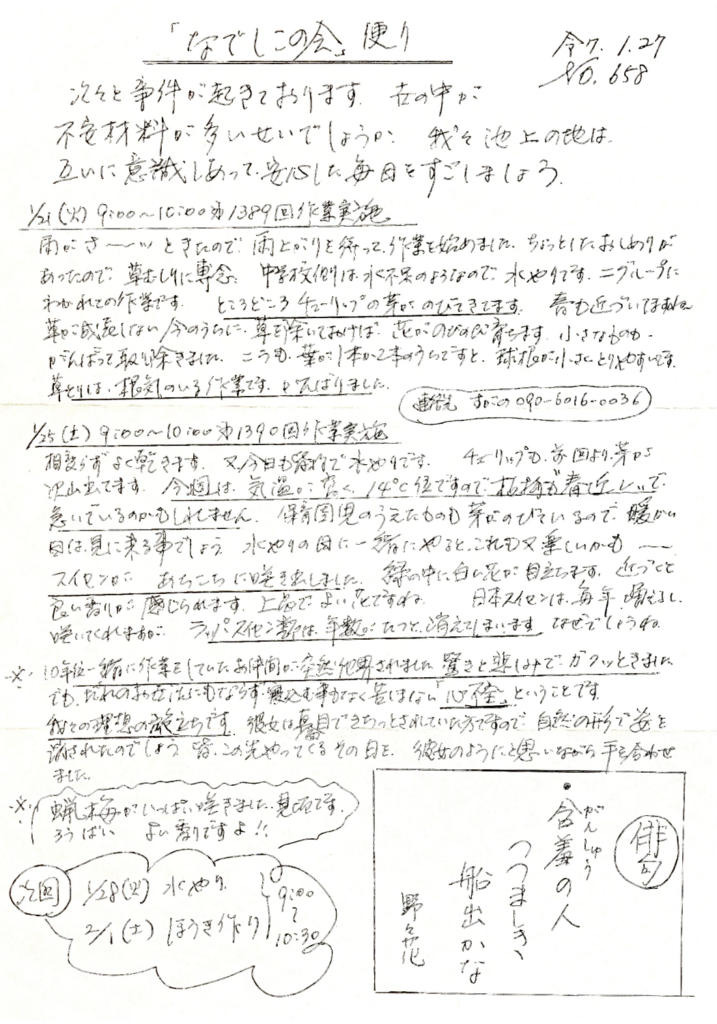 「なでしこの会」便り
令7. 1.27
NO. 658
次々と事件が起きております。世の中が
不安材料が多いせいでしょうか。我々池上の地は、
互いに意識しあって、安心した毎日をすごしましょう。
1/21(火) 9:00〜10:00 第1389回作業実施
雨がさ〜〜ッときたので、雨上がりを待って、作業を始めました。ちょっとしたおしめりが
あったので、草むしりに専念。中学校側は水不足のようなので、水やりです。二グループに
わかれての作業です。ところどころチューリップの芽がのびてきてます。春も近づいてますね
草が成長しない今のうちに、草を除いておけば、花がのびのび育ちます。小さなものも
がんばって取り除きました。こうも、葉が1本か2本のうちですと、球根が小さくとりやすいです。
草とりは、根気のいる作業です。がんばりました。
連絡先 すがの 090-6016-0036
1/25(土) 9:00〜10:00 第1390回作業実施
相変らずよく乾きます。又今日も総程で水やりです。チューリップも、前回より、芽が
沢山出てます。今週は、気温が高く、14℃位ですので、植物も「春近し」で
急いでいるのかもしれません。保育園児のうえたものも芽がのびているので、暖かい
日は、見に来る事でしょう。水やりの日に一緒にやると、これも又楽しいかも〜〜
スイセンが あちこちに咲き出しました。緑の中に白い花が目立ちます。近づくと
良い香りが感じられます。上品でよい花ですね。日本スイセンは、毎年、増えるし、
咲いてくれますが、ラッパスイセン等は、年数がたつと、消えてしまいます。なぜでしょうね
※ 10年位一緒に作業をしていたお仲間が、突然他界されました。驚きと悲しみで、ガクッときました
でも、だれのお世話にもならず、寝込む事もなく苦しまない「心不全」ということです
我々の理想の旅立ちです。彼女は真面目できちっとされていた方ですので、自然の形で姿を
消されたのでしょう。皆、この先やってくるその日を、彼女のようにと思いながら手を合わせ
ました。
※ 蝋梅がいっぱい咲きました。見頃です。
ろうばい よい香りですよ!!
次回
1/28(火) 水やり
2/1(土) ほうき作り
9:00
〜
10:30
俳句
・含羞の人
がんしゅう
つつましき、
船出かな
野々花